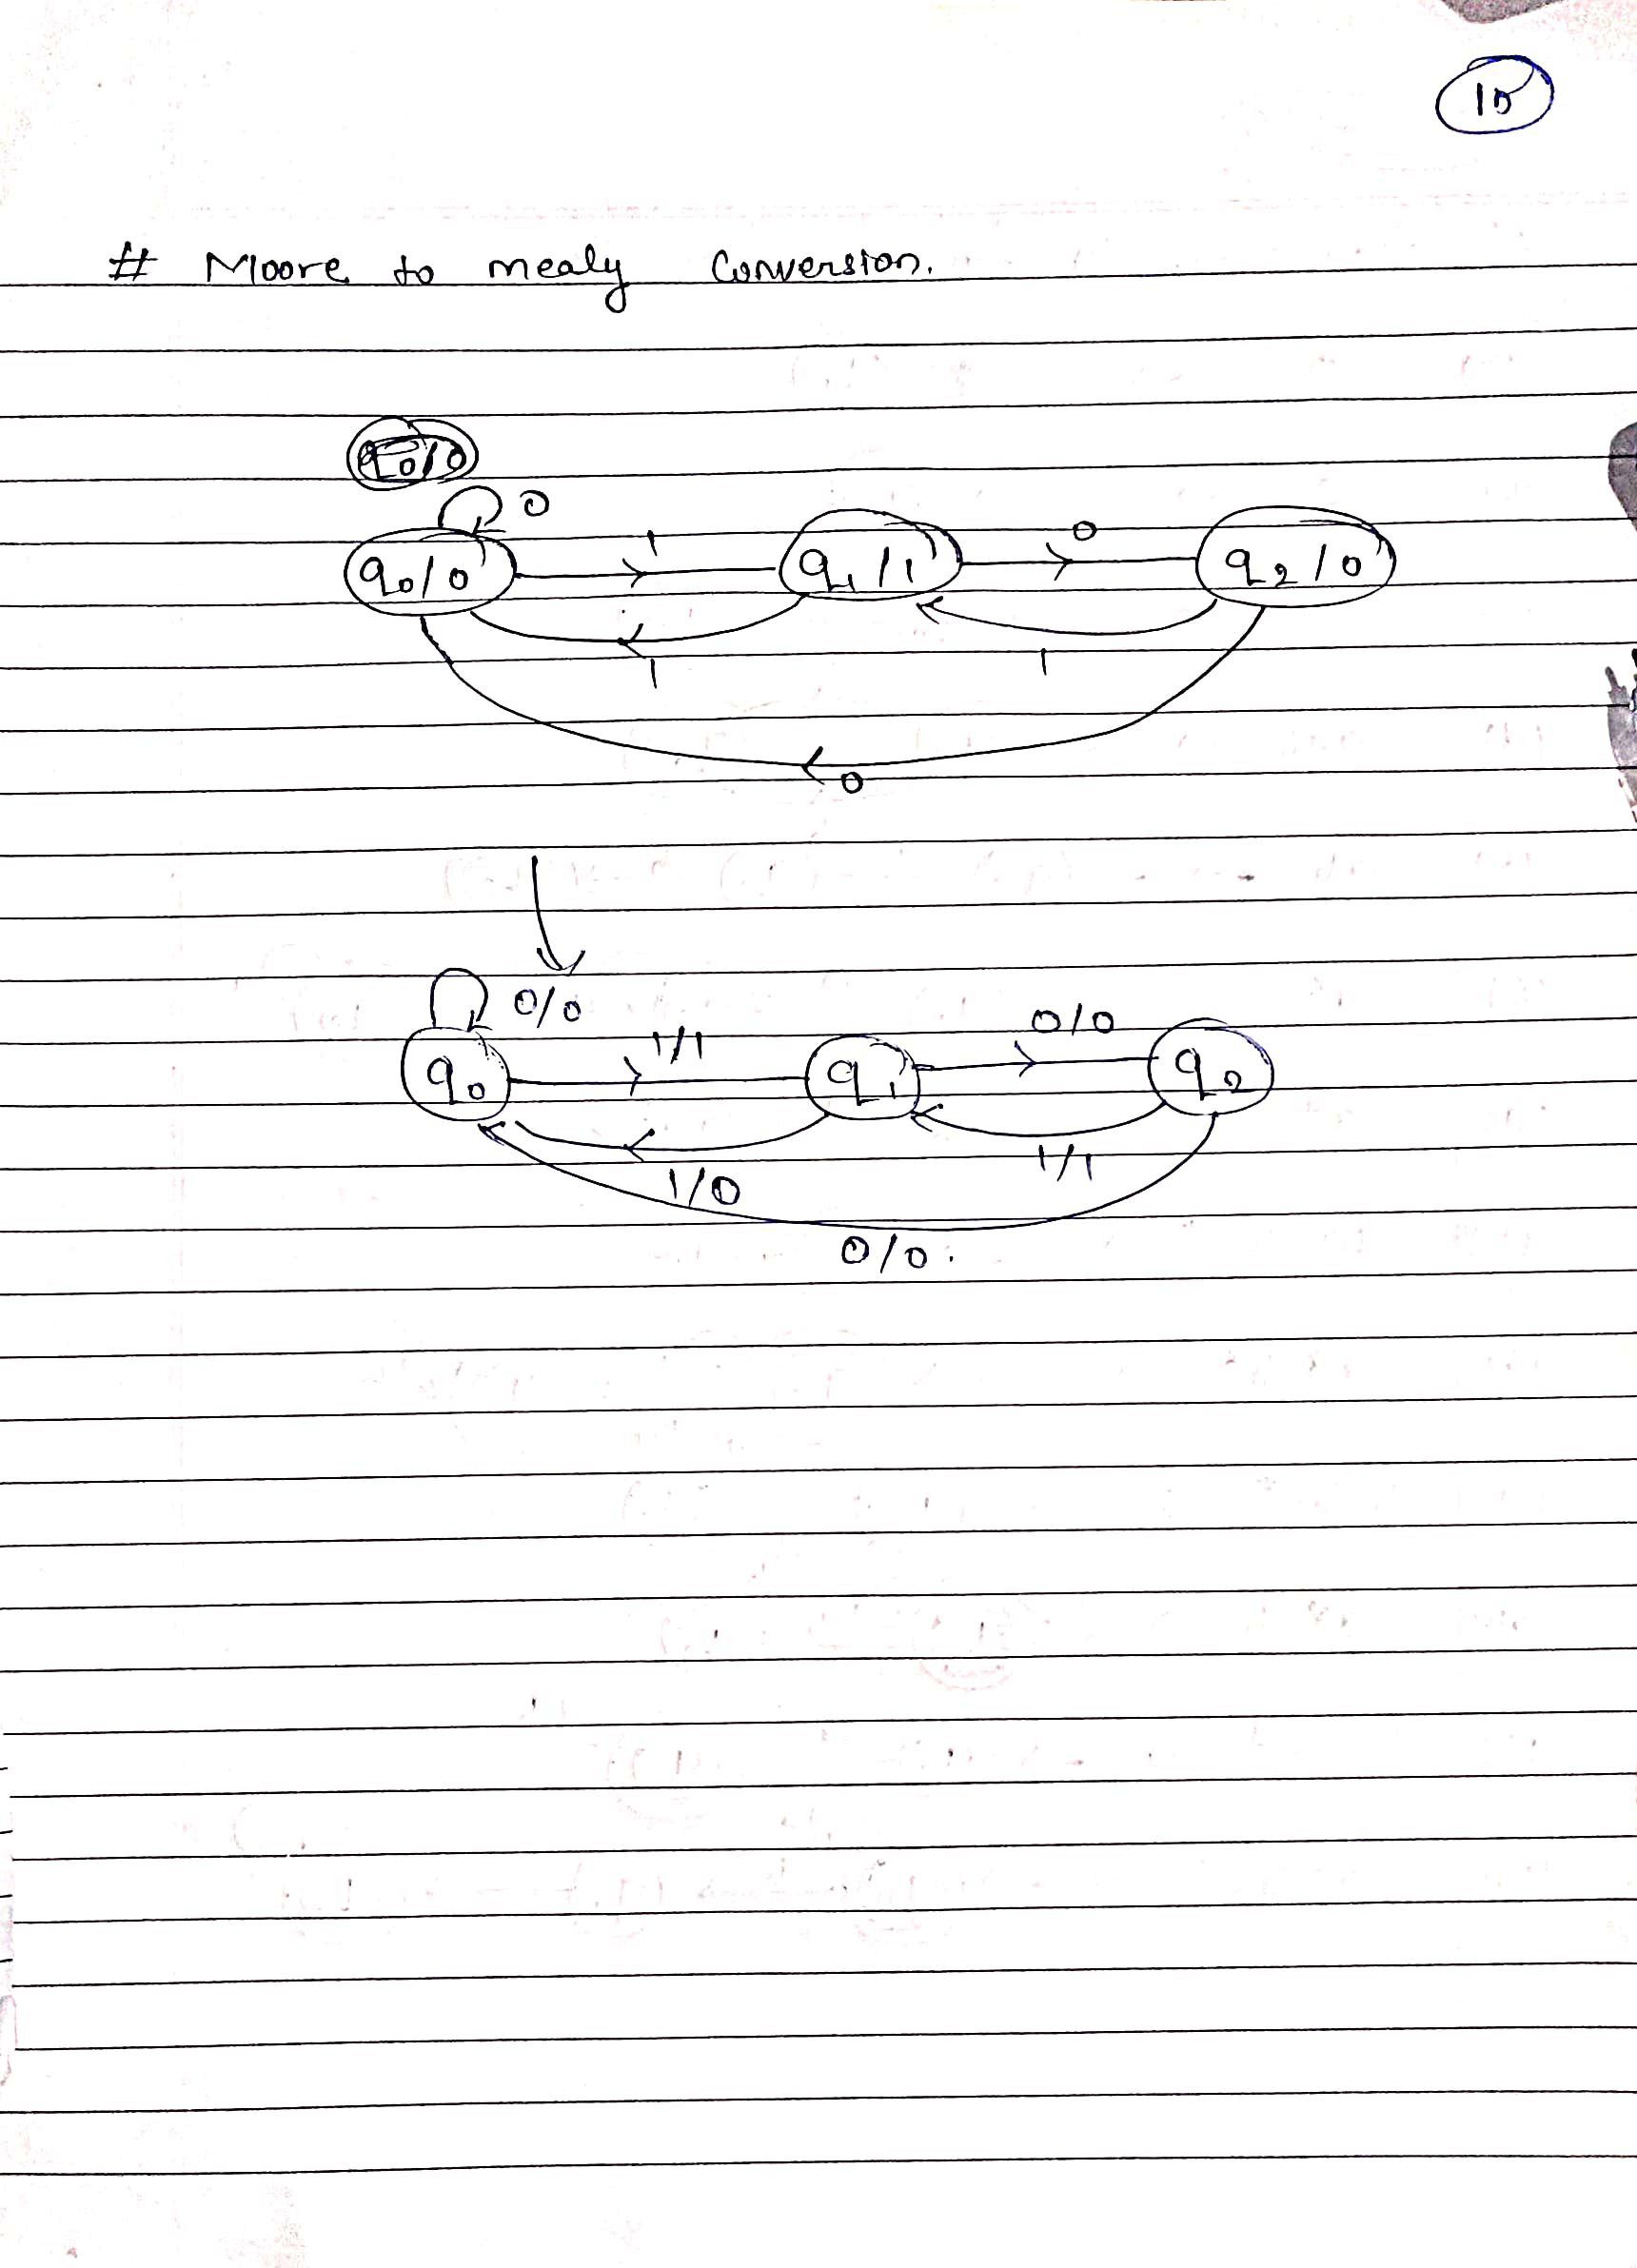 10
# Moore to mealy Conversion.
q0/0
0
q0/0 1 q1/1 0 q2/0
1 1
0
0/0
q0 1/1 q1 0/0 q2
1/0 1/1
0/0.